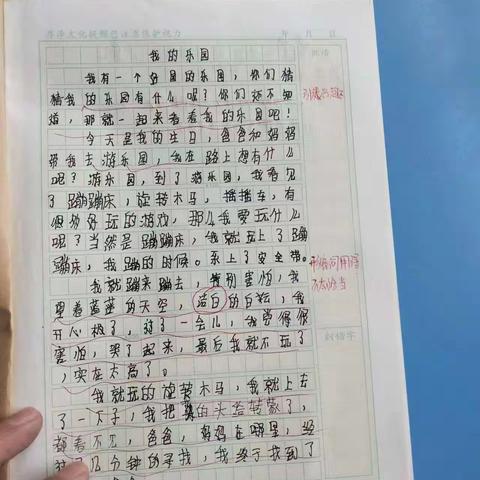 年 月 日
批语
我的乐园
我有一个好日的乐园，你们猜
猜我的乐园有什么呢？你们还不知
道，那就一起来看看我的乐园吧！
今天是我的生日，爸爸和妈妈
带我去游乐园，我在路上想有什么
呢？游乐园，到了游乐园，我看见
了蹦蹦床，旋转木马，摇摇车，有
很多好玩的游戏，那么我要玩什么
呢？当然是蹦蹦床，我就玩上了蹦
蹦床，我蹦的时候。系上了安全带。
我就蹦来蹦去，我别害怕，我
望着蓝蓝的天空，洁白的白云，我
开心极了，过了一会儿，我觉得很
害怕，哭了起来，最后我就不玩了
，实在太高了。
我就玩的旋转木马，我就上去
了一下子，我把我的头给转蒙了，
都看不见，爸爸，妈妈在哪里，经
过几分钟的寻找，我终于找到了
形容词用得
不太恰当
纠错字